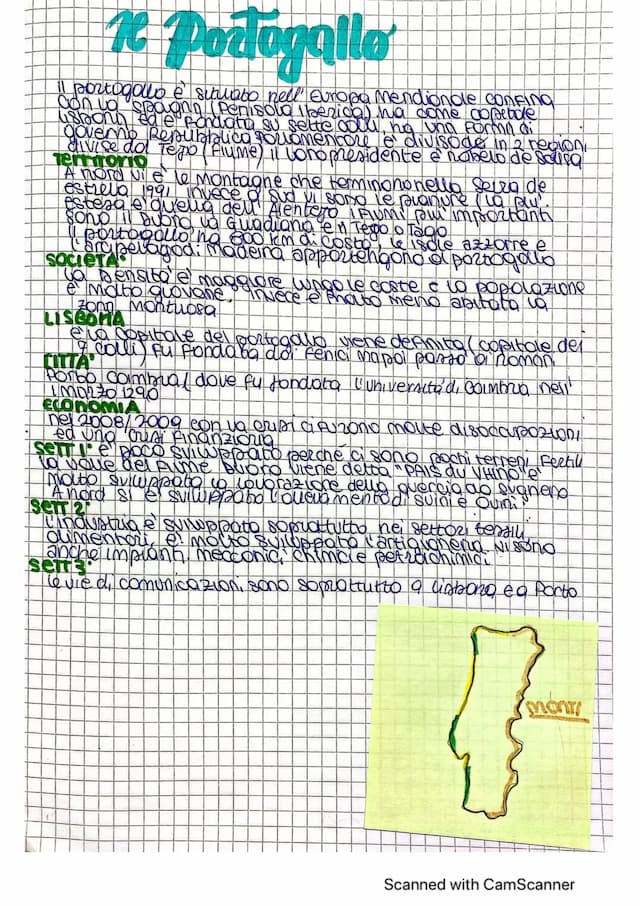 Il Portogallo
Il portogallo è situato nell' Europa Meridionale confina
con la Spagna (Penisola Iberica) ha come capitale
Lisbona ed è fondata su sette colli, ha una forma di
governo Repubblica parlamentare è divisode in 2 regioni
divise dal Tego (fiume) il loro presidente è
TERRITORIO
A nord vi è le montagne che terminono nella Serra de
estrella 1991 invece a sud vi sono le pianure (la piu'
estesa e' quella dell' Alentejo i fiumi piu' importanti
sono il Duoro la Guadiana e n Tego o Tago
Il portogallo ha 800 km di costa, le isole azzorre e
l'arcipelago di madeira appartengono al portogallo
SOCIETA'
La Densita' e' maggiore lungo le coste e la popolazione
e' molto giovane, invece e' molto meno abitata la
zona montuosa
LISBONA
e' la capitale del portogallo viene definita (capitale dei
7 colli) fu fondata dai fenici ma poi passò ai Romani
CITTA'
Porto Coimbra (dove fu fondata l'università di Coimbra nell'
1 marzo 1290
ECONOMIA
nel 2008/2009 con la crisi ci furono molte disoccupazioni
ed una crisi finanziaria
SETT 1° è poco sviluppato perché ci sono pochi terreni fertili
la valle del fiume Duoro viene detta "PAIS du VINHO" e'
molto sviluppata la lavorazione della quercia da sughero
A nord si è sviluppato l'allevamento di suini e ovini
SETT 2°
L'industria è sviluppata soprattutto nei settori tessili,
alimentari, e' molto sviluppato l'artigianeria. Vi sono
anche impianti meccanici chimici e petrolchimici
SETT 3°
Le vie di comunicazioni sono soprattutto a Lisbona e a Porto
MONTI
Scanned with CamScanner